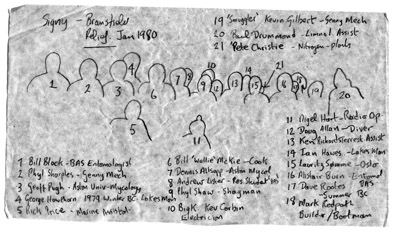 Signy - Bransfield
Relief Jan 1980
19 'Smuggler' Kevin Gilbert - Genny Mech
20 Paul Drummond - Limnol Assist
21 'Pete Christie - Nitrogen - plants
1 2 3 4 5 6 7 8 9 10 11 12 13 14 15 16 17 18 19 20 21
1 Bill Block - BAS Entomologist
2 Phyl Sharples - Genny Mech
3 Geoff Pugh - Aston Univ - Mycology
4 George Hawthorn 1979 Winter BC - Lakes Man
5 Rich Price - Marine Invertebrat.
6 Bill 'Wullie' McKie - Cook
7 Dennis Allsopp - Aston Mycol
8 Andrew Usher - Res Student
9 Phyl Shaw -
10 Big K. Kev Corbin
Electrician
11 Nigel Hart - Radio Op
12 Doug Allan - Diver
13 Ken Terrest Assist
14 Ian Hawes - Lakes Man
15 Lauritz Sømme - Oslo
16 Alistair Burn - Entomol
17 Dave Rootes BAS
- Summer BC
18 Mark Redpath
Builder/Boatman